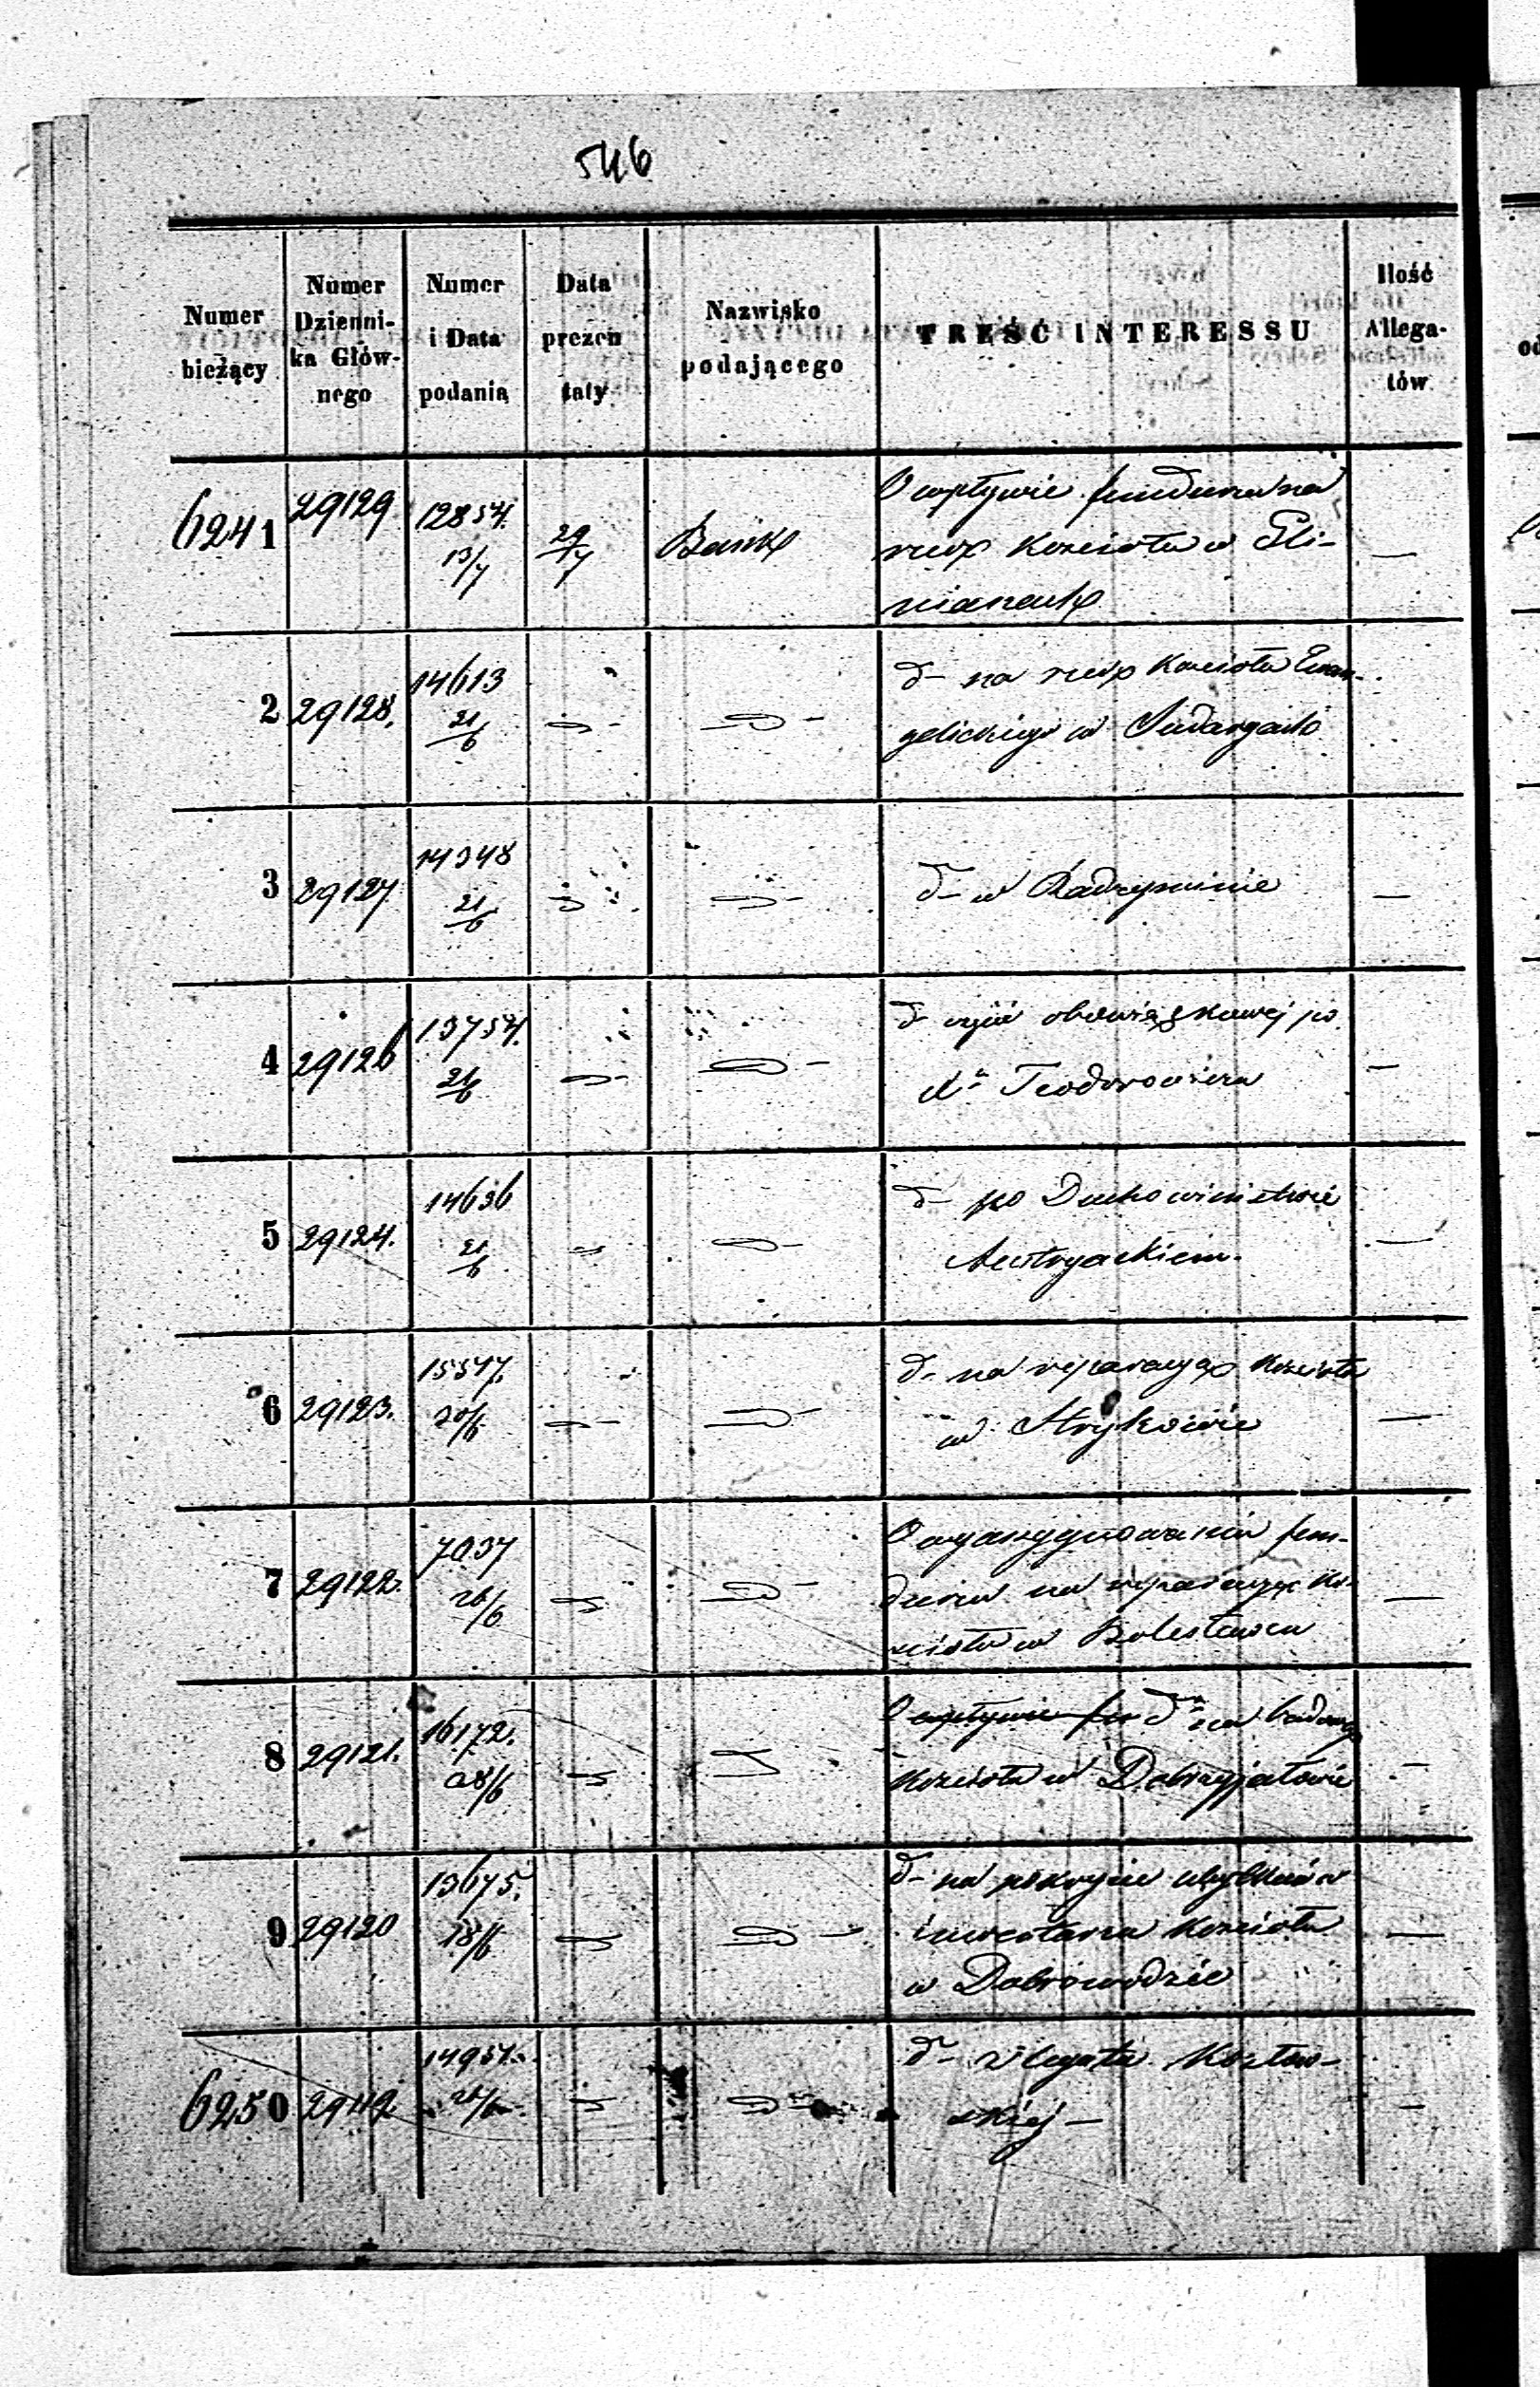 546
Numer bieżący
Numer Dzienni-ka Głów-nego
Numer i Data podania
Data prezen taty
Nazwisko podającego
TREŚĆ INTERESSU
Ilość Allega-tów
6241 29129 12854. 13/7 29/7 Bank O wpływie funduszu na
rep Kościoła w Gli-
nianach —
2 29128. 14613 21/6 d- na rep Kościoła Ewan-
gelickiego w Sudargach
3 29127 14348 21/6 d- w Radzyminie —
4 29126 13754. 21/6 d- obowiązkowej po
Xu Teodorowicza —
5 29124. 14636 21/6 d- po Duchowieństwie
Austryackiem. —
6 29123. 15547. 20/6 d- na reparacyą Kościoła
w Strykowie —
7 29122. 7037 26/6 O wyasygnowaniu fun-
duszu na reparacyą Ko-
ścioła w Bolesławcu —
8 29121. 16172. 28/6 O wpływie fu du na budowę
Kościoła w Dobrzyjałowie —
9 29120 13675. 18/6 d- na pokrycie ubytków
inwentarza Kościoła
w Dobrowodzie —
6250 29119 14954. 26/6 d- z legatu Kozłow-
skiej — —